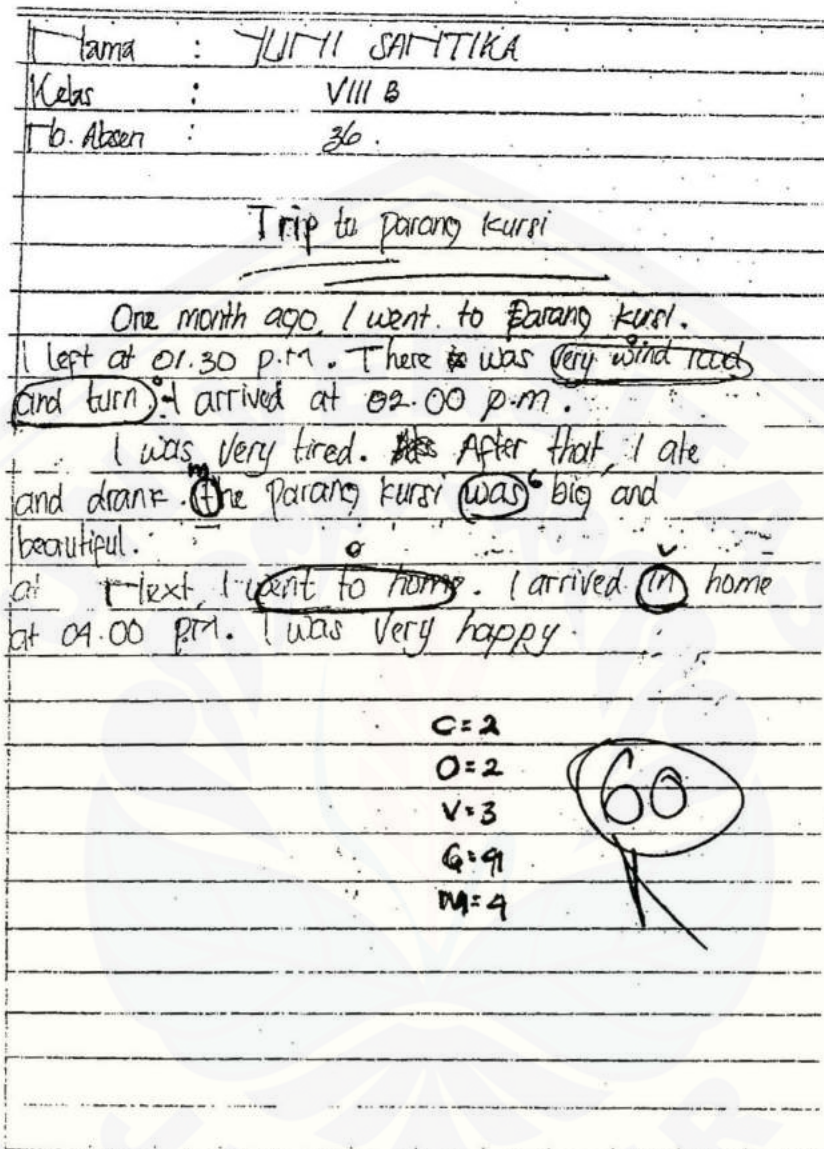 Nama : YUNI SANTIKA
Kelas : VIII B
No. Absen : 36.
Trip to parang kursi
One month ago, I went to parang kursi.
I left at 01.30 p.m. There was very wind road
and turn. I arrived at 02.00 p.m.
I was very tired. After that, I ate
and drank. the parang kursi was big and
beautiful.
at Next, I went to home. I arrived in home
at 04.00 pm. I was very happy.
C = 2
O = 2
V = 3
G = 4
M = 4
60